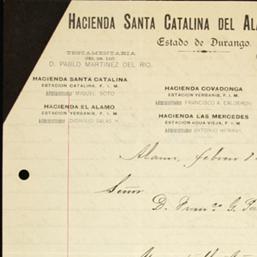 HACIENDA SANTA CATALINA DEL ALA
Estado de Durango.
TESTAMENTARIA
DEL SR. LIC.
D. PABLO MARTINEZ DEL RIO.
HACIENDA SANTA CATALINA
ESTACION CATALINA, F. I. M.
ADMINISTRADOR MIGUEL SOTO
HACIENDA EL ALAMO
ESTACION YERBANIS, F. I. M.
ADMINISTRADOR DIONISIO SALAS H.
HACIENDA COVADONGA
ESTACION YERBANIS, F. I. M.
ADMINISTRADOR FRANCISCO A. CALDERON
HACIENDA LAS MERCEDES
ESTACION AGUA VIEJA, F. I. M.
ADMINISTRADOR ANTONIO
Alamo, febrero
Señor
D. Franco G.